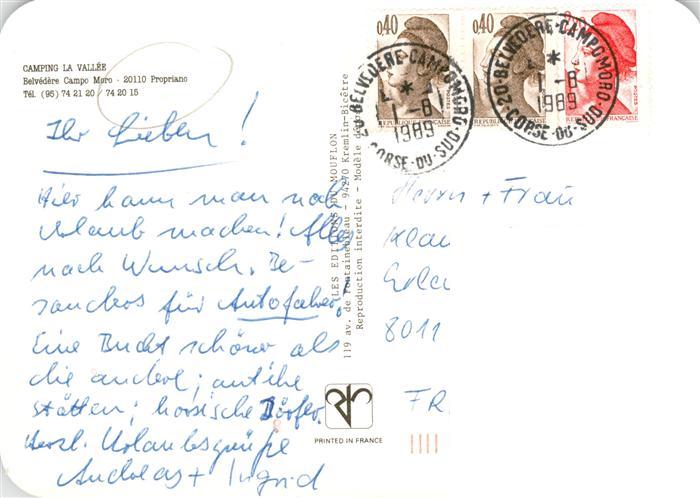 CAMPING LA VALLÉE
Belvédère Campo Moro - 20110 Propriano
Tél. (95) 74 21 20 / 74 20 15
Ihr Lieben!
Hier kann man noch
Urlaub machen! Alles
nach Wunsch. Be-
sonders für Autofahrer.
Eine Bucht schöner als
die andere; antike
Stätten; korsische Dörfer.
Herzl. Urlaubsgrüße
Andreas + Ingrid
LES EDITIONS DU MOUFLON
119 av. de Fontainebleau - 94270 Kremlin-Bicêtre
Reproduction interdite - Modèle
PRINTED IN FRANCE
0,40
0,40
REPUBLIQUE FRANÇAISE
20 BELVEDERE-CAMPOMORO
1-8
1989
CORSE-DU-SUD
20 BELVEDERE-CAMPOMORO
1-8
1989
CORSE-DU-SUD
Herrn + Frau
Klau
8011
FR